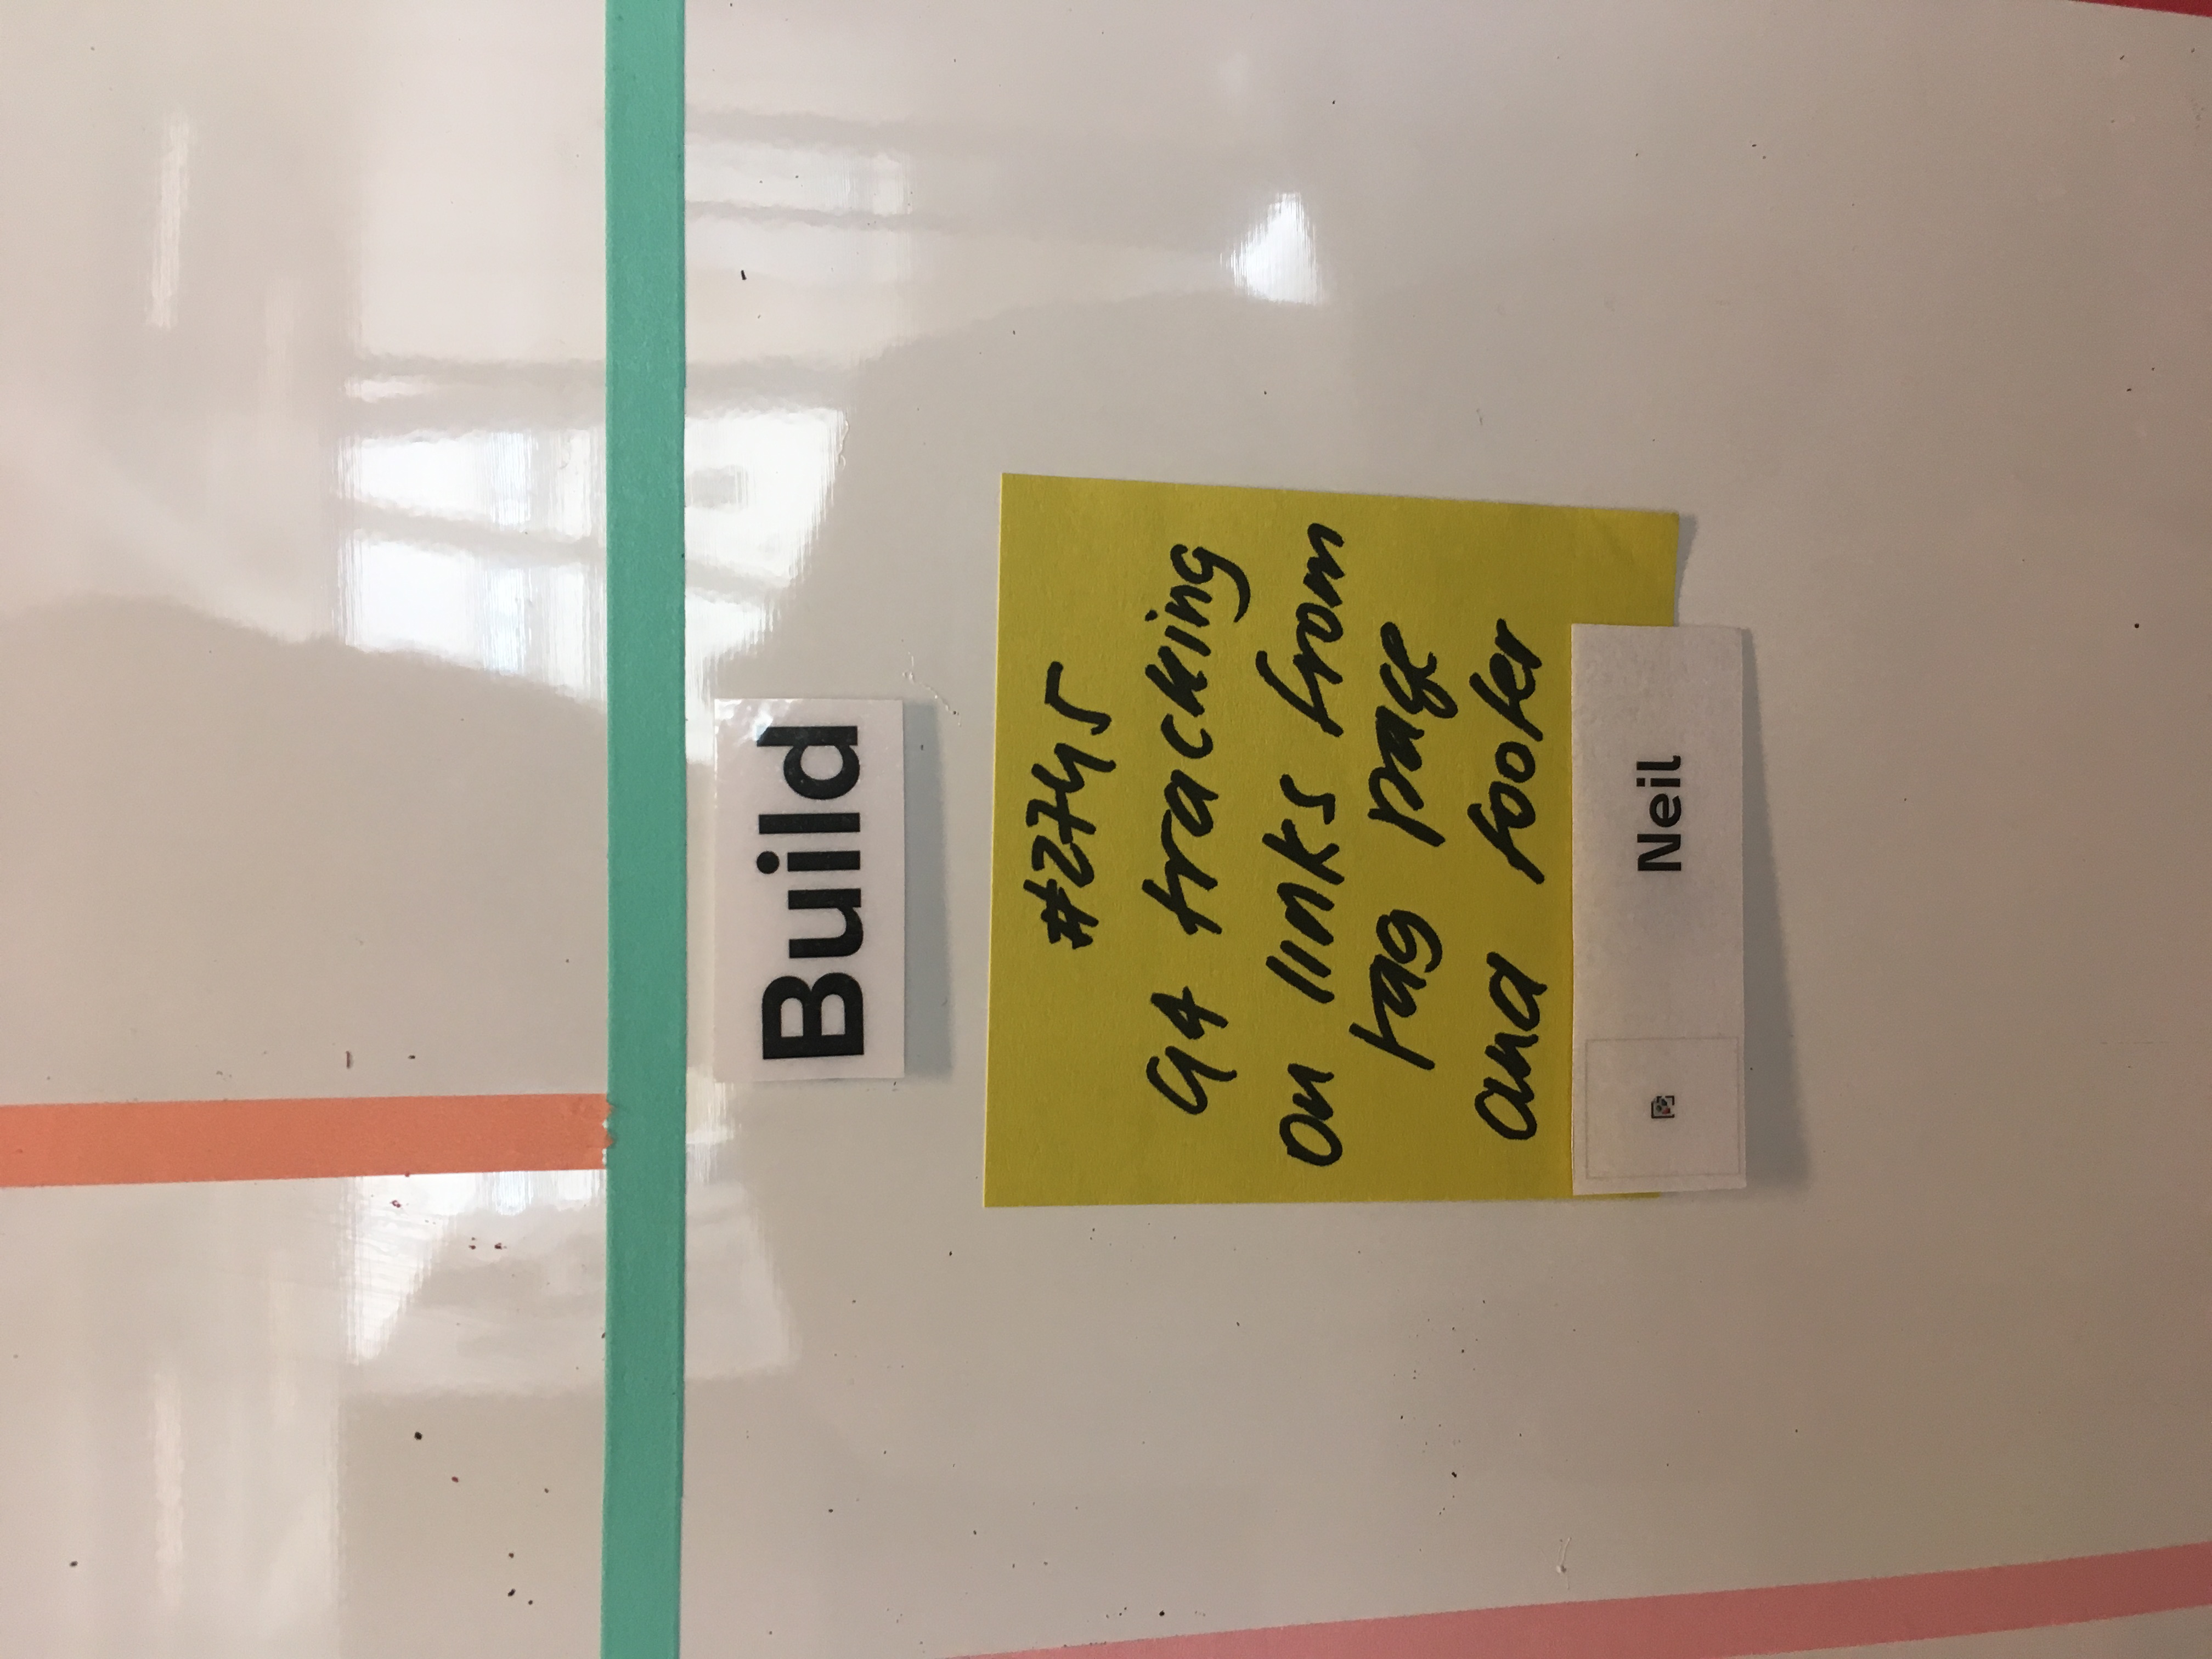 Build
#2745
GA tracking
on links from
tag page
and footer
Neil